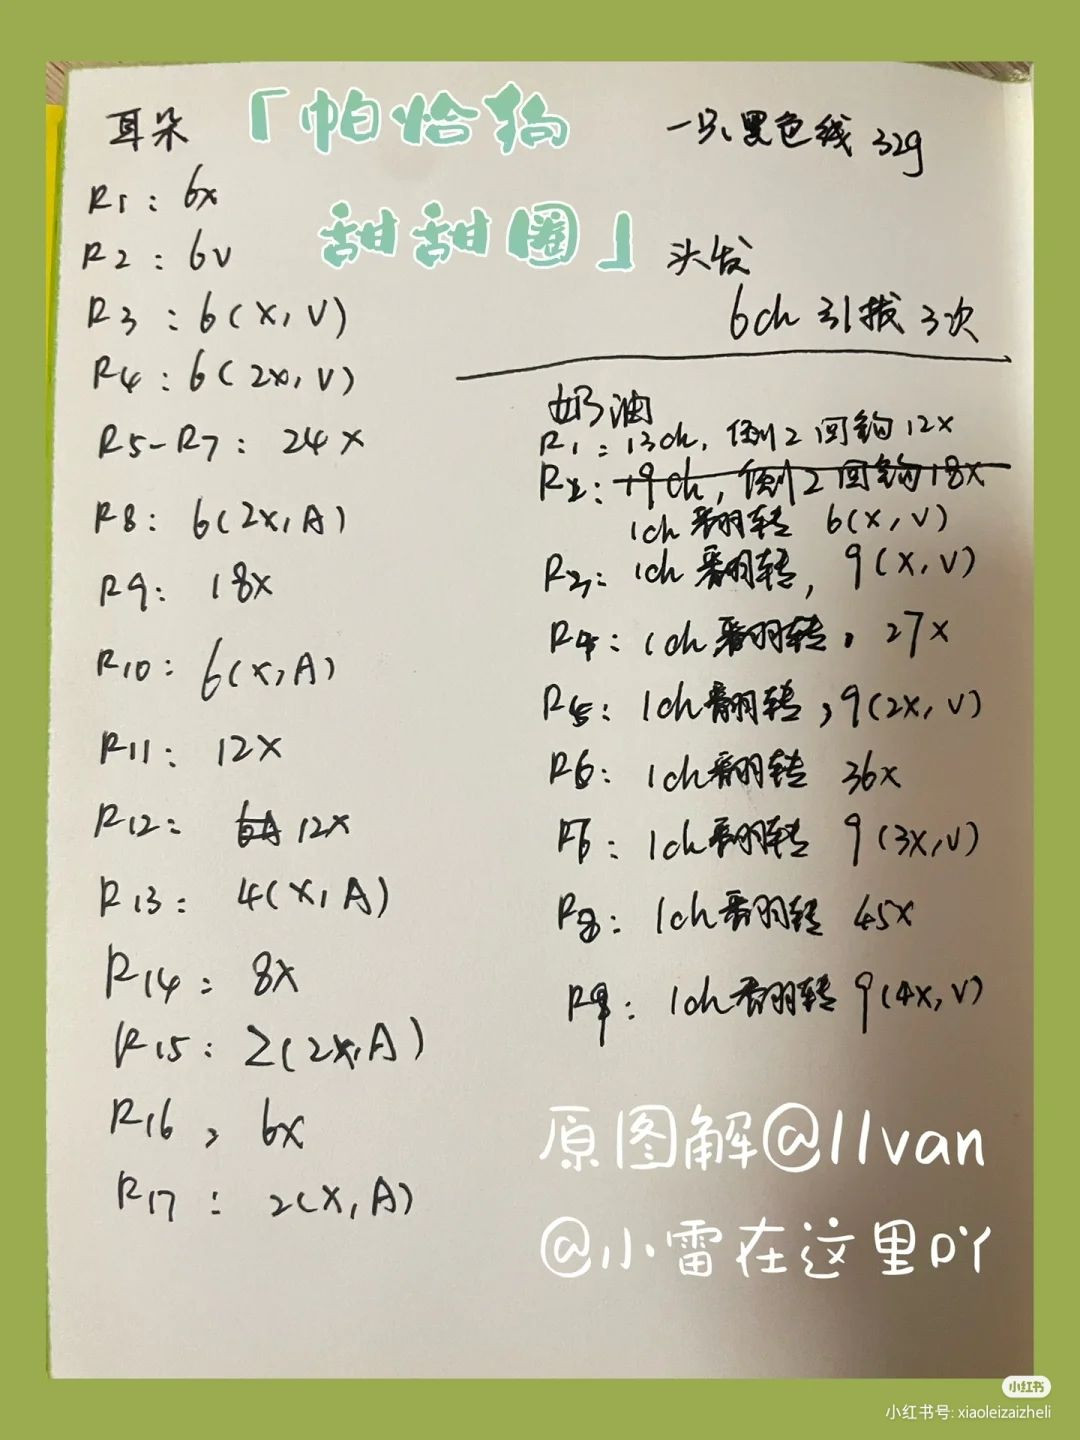 「帕恰狗
甜甜圈」
耳朵
R1：6x
R2：6v
R3：6(x,v)
R4：6(2x,v)
R5-R7：24x
R8：6(2x,A)
R9：18x
R10：6(x,A)
R11：12x
R12：6A 12x
R13：4(x,A)
R14：8x
R15：2(2x,A)
R16，6x
R17：2(x,A)
一只黑色线 32g
头发
6ch 引拔 3次
奶油
R1：13ch，倒2回钩12x
R2：19ch，倒2回钩18x
1ch翻转 6(x,v)
R3：1ch翻转，9(x,v)
R4：1ch翻转，27x
R5：1ch翻转，9(2x,v)
R6：1ch翻转 36x
1ch翻转 9(3x,v)
R8：1ch翻转 45x
R9：1ch翻转 9(4x,v)
原图解@11van
@小雷在这里吖
小红书
小红书号: xiaoleizaizheli